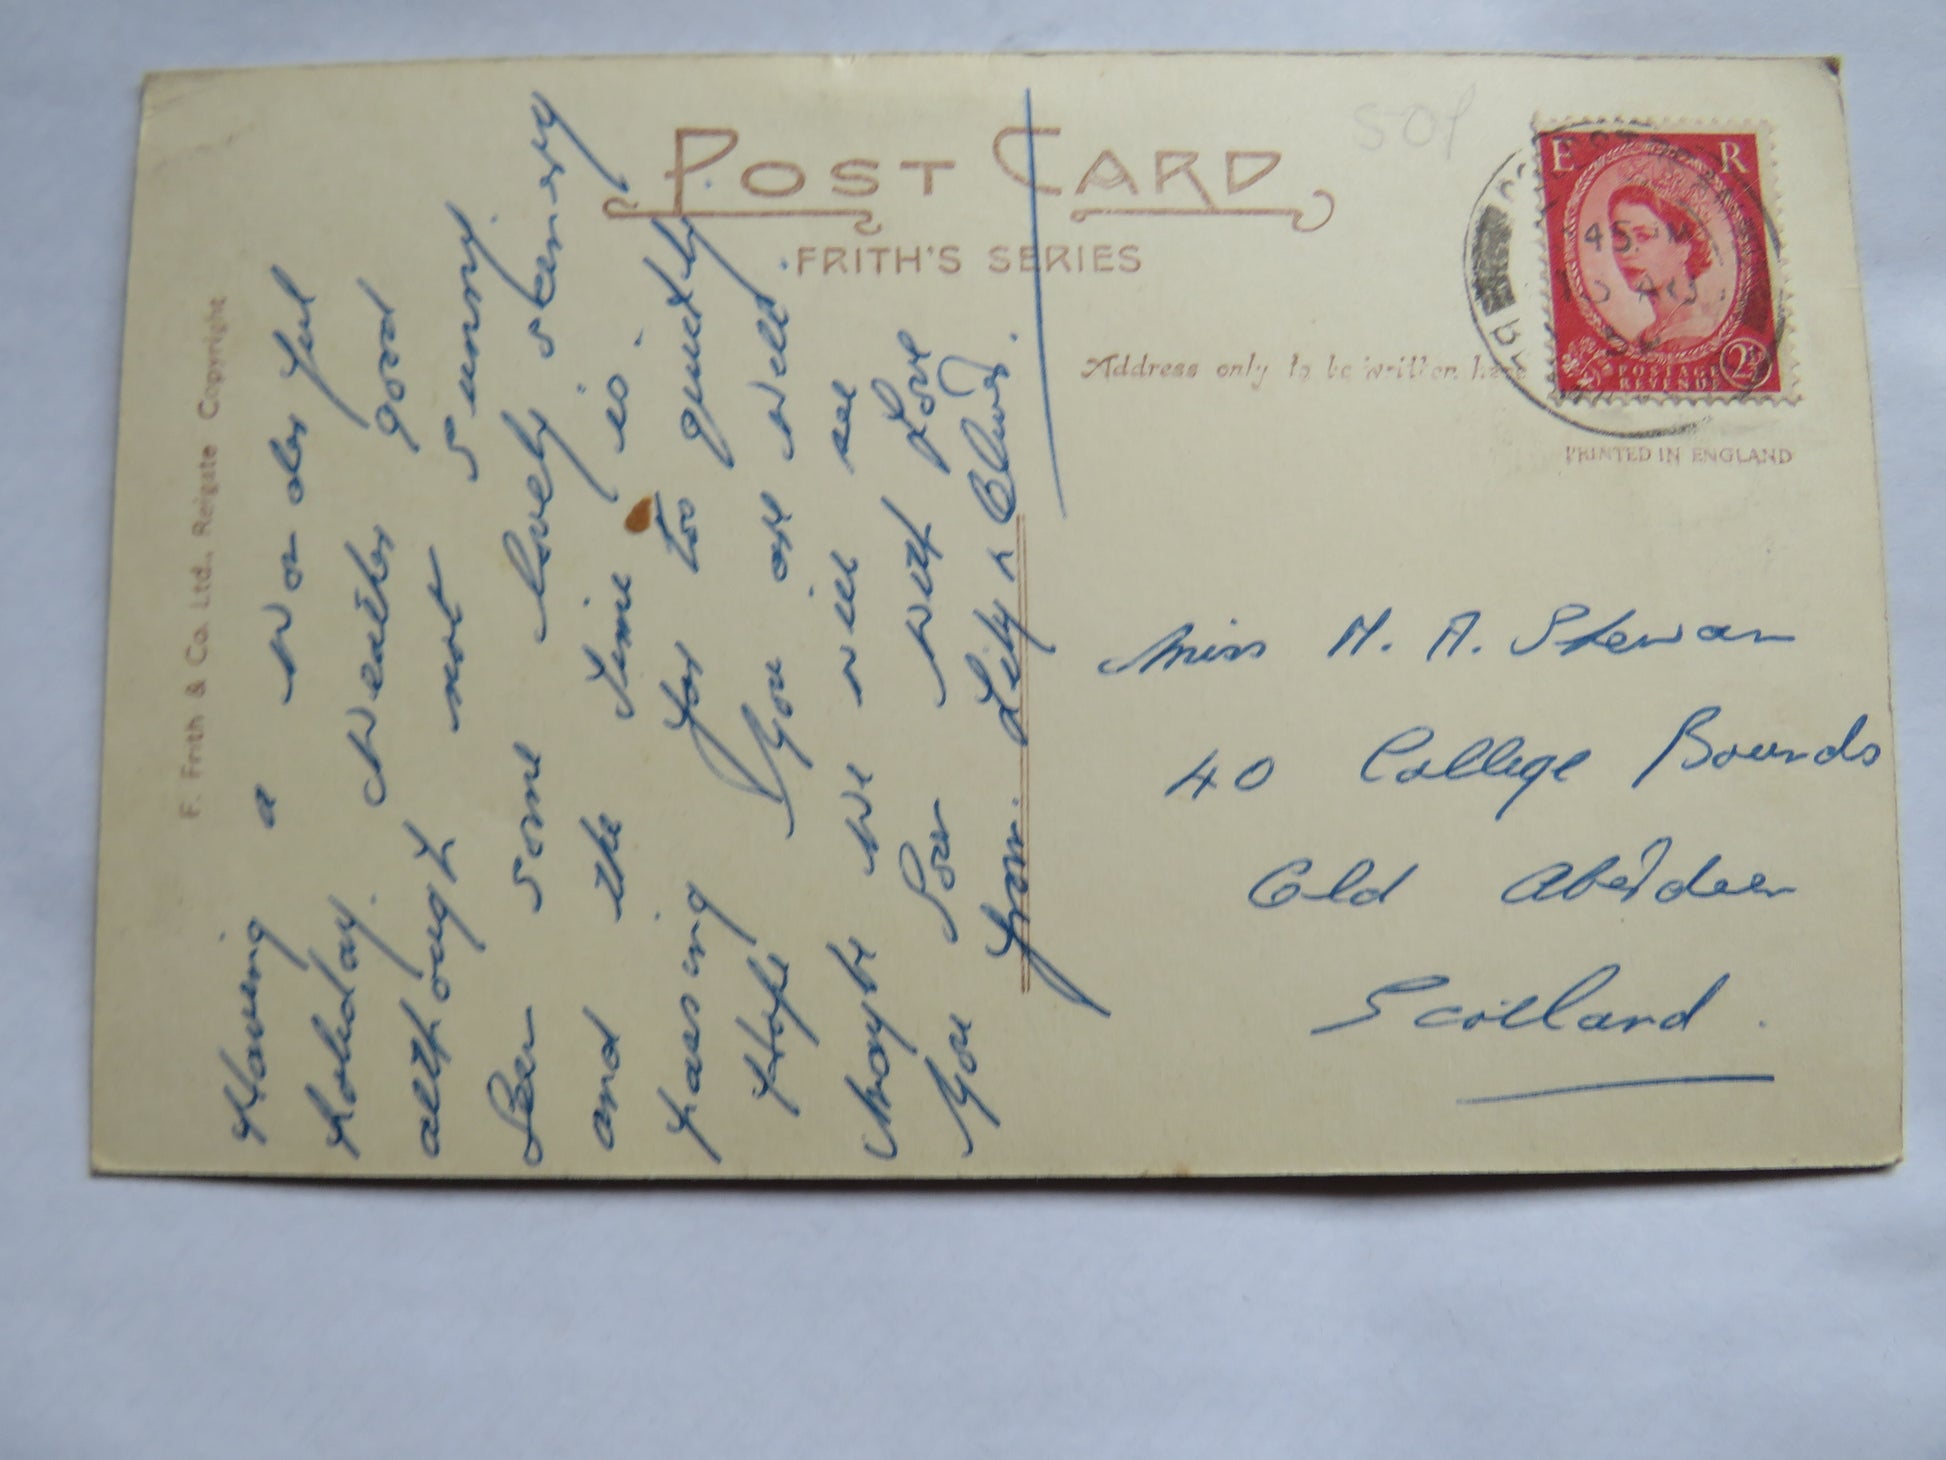 POST CARD
FRITH'S SERIES
Address only to be written here
PRINTED IN ENGLAND
E R
POSTAGE
REVENUE
2½D
F. Frith & Co. Ltd., Reigate Copyright
Having a wonderful
holiday. weather good
although not sunny.
Seen some lovely scenery
and the time is
passing far too quickly.
Hope you are well.
Maybe we will see
you soon with Love
from. Lily &
Miss M. A.
40 College Bounds
Old Aberdeen
Scotland.